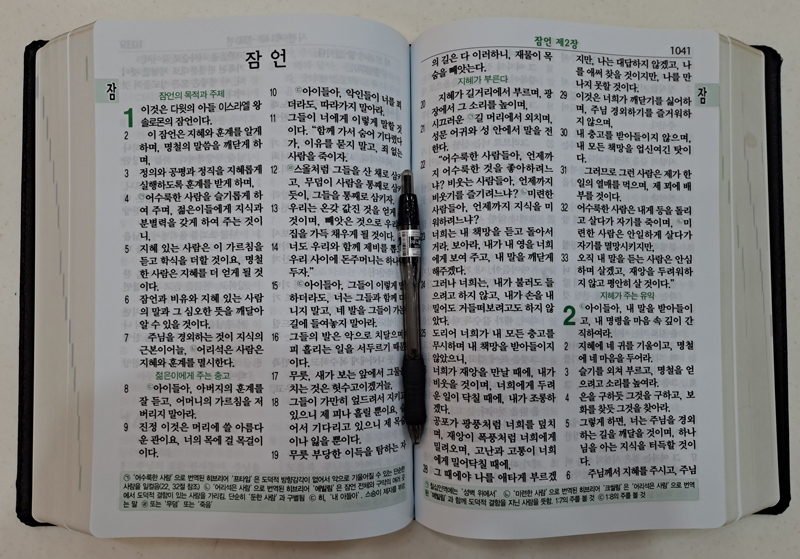 잠언
잠
잠언의 목적과 주제
1 이것은 다윗의 아들 이스라엘 왕
솔로몬의 잠언이다.
2 이 잠언은 지혜와 훈계를 알게
하며, 명철의 말씀을 깨닫게 하
며,
3 정의와 공평과 정직을 지혜롭게
실행하도록 훈계를 받게 하며,
4 ㉠어수룩한 사람을 슬기롭게 하
여 주며, 젊은이들에게 지식과
분별력을 갖게 하여 주는 것이
니,
5 지혜 있는 사람은 이 가르침을
듣고 학식을 더할 것이요, 명철
한 사람은 지혜를 더 얻게 될 것
이다.
6 잠언과 비유와 지혜 있는 사람
의 말과 그 심오한 뜻을 깨달아
알 수 있을 것이다.
7 주님을 경외하는 것이 지식의
근본이어늘, ㉡어리석은 사람은
지혜와 훈계를 멸시한다.
젊은이에게 주는 충고
8 ㉢아이들아, 아버지의 훈계를
잘 듣고, 어머니의 가르침을 저
버리지 말아라.
9 진정 이것은 머리에 쓸 아름다
운 관이요, 너의 목에 걸 목걸이
이다.
10 ㉢아이들아, 악인들이 너를 꾀
더라도, 따라가지 말아라.
11 그들이 너에게 이렇게 말할 것
이다. "함께 가서 숨어 기다렸다
가, 이유를 묻지 말고, 죄 없는
사람을 죽이자.
12 ㉣스올처럼 그들을 산 채로 삼키
고, 무덤이 사람을 통째로 삼키
듯이, 그들을 통째로 삼키자.
13 우리는 온갖 값진 것을 얻게
것이며, 빼앗은 것으로 우리
집을 가득 채우게 될 것이다.
14 너도 우리와 함께 제비를 뽑
우리 사이에 돈주머니는 하나
두자."
15 ㉢아이들아, 그들이 이렇게
하더라도, 너는 그들과 함께
니지 말고, 네 발을 그들이 가
길에 들여놓지 말아라.
16 그들의 발은 악으로 치달으며
피 흘리는 일을 서두르기 때문
이다.
17 무릇, 새가 보는 앞에서 그물
치는 것은 헛수고이겠거늘,
18 그들이 가만히 엎드려서 지키고
있으니 제 피나 흘릴 뿐이요,
어서 기다리고 있으니 제 목숨
이나 잃을 뿐이다.
19 무릇 부당한 이득을 탐하는 자
㉠ '어수룩한 사람'으로 번역된 히브리어 '프타임'은 도덕적 방향감각이 없어서 악으로 기울어질 수 있는 단순한
사람을 일컬음(22, 32절 참조) ㉡ '어리석은 사람'으로 번역된 히브리어 '에빌림'은 잠언 전체와 구약의 여러 곳
에서 도덕적 결함이 있는 사람을 가리킴. 단순히 '둔한 사람'과 구별됨 ㉢ 히, '내 아들아'. 스승이 제자를 부르
는 말 ㉣ 또는 '무덤' 또는 '죽음'
잠언 제2장
1041
잠
의 길은 다 이러하니, 재물이 목
숨을 빼앗는다.
지혜가 부른다
20 지혜가 길거리에서 부르며, 광
장에서 그 소리를 높이며,
21 시끄러운 길 머리에서 외치며,
성문 어귀와 성 안에서 말을 전
한다.
22 "어수룩한 사람들아, 언제까
지 어수룩한 것을 좋아하려느
냐? 비웃는 사람들아, 언제까지
비웃기를 즐기려느냐? 미련한
사람들아, 언제까지 지식을 미
워하려느냐?
23 너희는 내 책망을 듣고 돌아서
거라. 보아라, 내가 내 영을 너희
에게 보여 주고, 내 말을 깨닫게
해주겠다.
24 그러나 너희는, 내가 불러도 들
으려고 하지 않고, 내가 손을 내
밀어도 거들떠보려고도 하지 않
았다.
25 도리어 너희가 내 모든 충고를
무시하며 내 책망을 받아들이지
않았으니,
너희가 재앙을 만날 때에, 내가
비웃을 것이며, 너희에게 두려
운 일이 닥칠 때에, 내가 조롱하
겠다.
공포가 광풍처럼 너희를 덮치
며, 재앙이 폭풍처럼 너희에게
밀려오며, 고난과 고통이 너희
에게 밀어닥칠 때에,
28 그 때에야 나를 애타게 부르겠
지만, 나는 대답하지 않겠고, 나
를 애써 찾을 것이지만, 나를 만
나지 못할 것이다.
29 이것은 너희가 깨닫기를 싫어하
며, 주님 경외하기를 즐거워하
지 않으며,
30 내 충고를 받아들이지 않으며,
내 모든 책망을 업신여긴 탓이
다.
31 그러므로 그런 사람은 제가 한
일의 열매를 먹으며, 제 꾀에 배
부를 것이다.
32 어수룩한 사람은 내게 등을 돌리
고 살다가 자기를 죽이며, 미
련한 사람은 안일하게 살다가
자기를 멸망시키지만,
33 오직 내 말을 듣는 사람은 안심
하며 살겠고, 재앙을 두려워하
지 않고 평안히 살 것이다."
지혜가 주는 유익
2 아이들아, 내 말을 받아들이
고, 내 명령을 마음 속 깊이 간
직하여라.
2 지혜에 네 귀를 기울이고, 명철
에 네 마음을 두어라.
3 슬기를 외쳐 부르고, 명철을 얻
으려고 소리를 높여라.
4 은을 구하듯 그것을 구하고, 보
화를 찾듯 그것을 찾아라.
5 그렇게 하면, 너는 주님을 경외
하는 길을 깨달을 것이며, 하나
님을 아는 지식을 터득할 것이
다.
6 주님께서 지혜를 주시고, 주님
㉠ 칠십인역에는 '성벽 위에서' ㉡ '미련한 사람'으로 번역된 히브리어 '크씰림'은 '어리석은 사람'으로 번역
된 히브리어 '에빌림'과 함께 도덕적 결함을 지닌 사람을 뜻함. 1:7의 주를 볼 것 ㉢ 1:8의 주를 볼 것